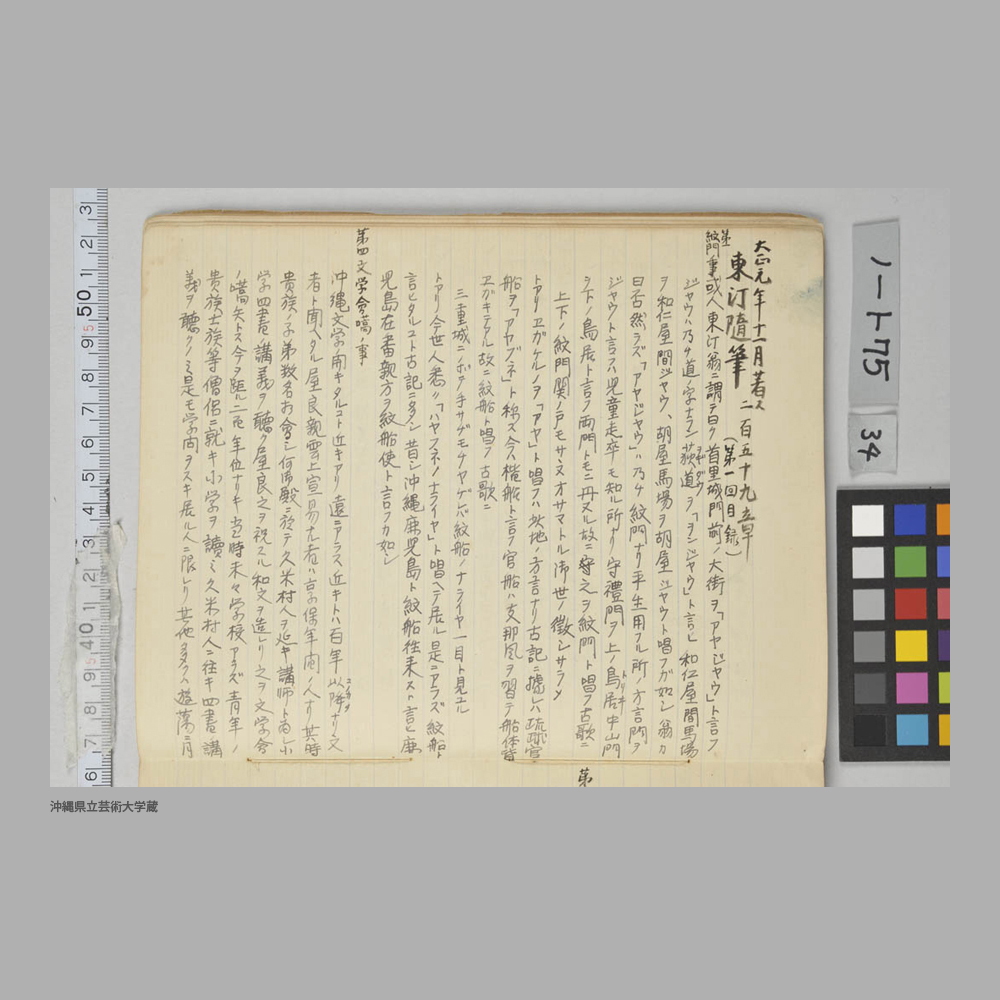 大正元年十一月著ス
東汀隨筆 二百五十九章
(第一回目録)
第
紋門事 或人東汀翁ニ謂テ曰ク首里城門前ノ大街ヲ「アヤジャウ」ト言フ
ジャウハ乃チ道ノ字ナラン 荻道ヲ「ヲンジャウ」ト言ヒ 和仁屋間馬場
ヲ和仁屋間ジャウ、胡屋馬場ヲ胡屋ジャウト唱フガ如シ 翁カ
曰否然ラズ「アヤジャウ」ハ乃チ紋門ナリ平生用フル所ノ方言門ヲ
ジャウト言フハ児童走卒モ知ル所ナリ守禮門ヲ上ノ鳥居中山門
ヲ下ノ鳥居ト言フ両門トモニ丹ヌル故ニ之ヲ紋門ト唱フ古歌ニ
上下ノ紋門関ノ戸モサヽヌオサマトル御世ノ徴シサラメ
トアリヱガケルノヲ「アヤ」ト唱フハ此地ノ方言ナリ古記ニ據レハ琉球官
船ヲ「アヤブネ」ト称ス今楷船ト言フ官船ハ支那風ヲ習テ船体皆
ヱガキテアル故ニ紋船ト唱フ古歌ニ
三重城ニノボテ手サヂモチヤゲレバ紋船ノナライヤ一目ト見ユル
トアリ今世人悉ク「ハヤフネノナライヤ」ト唱ヘテ居ル是ニアラズ紋船ト
言ヒタルコト古記ニ多シ昔シ沖縄鹿児島ト紋船往来スト言ヒ鹿
児島在番親方ヲ紋船使ト言フカ如シ
第四 文学会嚆ノ事
沖縄文学開キタルコト近キアリ遠ニアラス近キトハ百年以降ナリ文
者ト聞タル屋良親雲上宣易ナル者ハ享保年間ノ人ナリ其時
貴族ノ子弟数名お會シ何御殿ニ於テ久米村人ヲ延キ講師ト為シ小
学四書ノ講義ヲ聽ク屋良之ヲ祝スル和文ヲ造レリ之ヲ文学会
ノ嚆矢トス今ヲ距ル二百年位ナリキ当時未タ学校アラズ青年ノ
貴族士族等僧侶ニ就キ小学ヲ讀ミ久米村人ニ往キ四書ノ講
義ヲ聽クノミ是モ学問ヲスキ居ル人ニ限レリ其他多クハ遊蕩ニ月
第
ノート75
34
沖縄県立芸術大学蔵